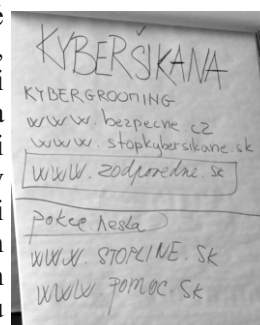 KYBERŠIKANA
KYBERGROOMING
www.bezpecne.cz
www.stopkybersikane.sk
www.zodpovedne.sk
heslá
www.STOPLINE.SK
www.pomoc.sk